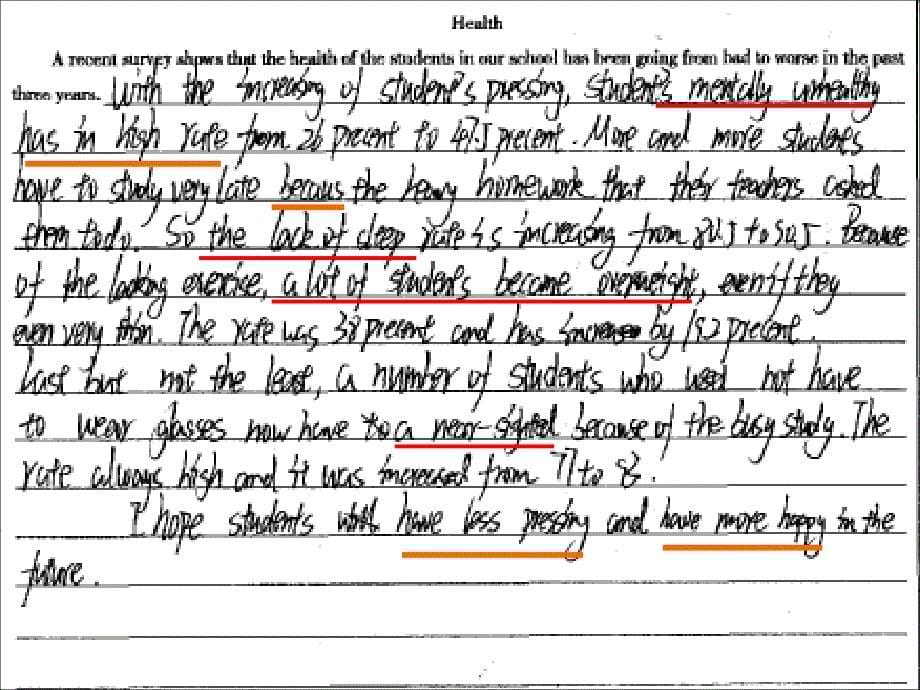 Health
A recent survey shows that the health of the students in our school has been going from bad to worse in the past
three years. With the increasing of student's pressing, student's mentally unhealthy
has in high rate from 26 precent to 47.5 precent. More and more students
have to study very late becaus the heavy homework that their teachers asked
them to do. So the lack of sleep rate is increasing from to 50.5. Because
of the lacking exercise, a lot of students become overweight, even if they
even very thin. The rate was 38 precent and has increase by 19.2 precent.
Last but not the least, a number of students who used not have
to wear glasses now have to a near-sighted because of the busy study. The
rate always high and it was increased from 77 to
I hope students will have less pressing and have more happy in the
future.